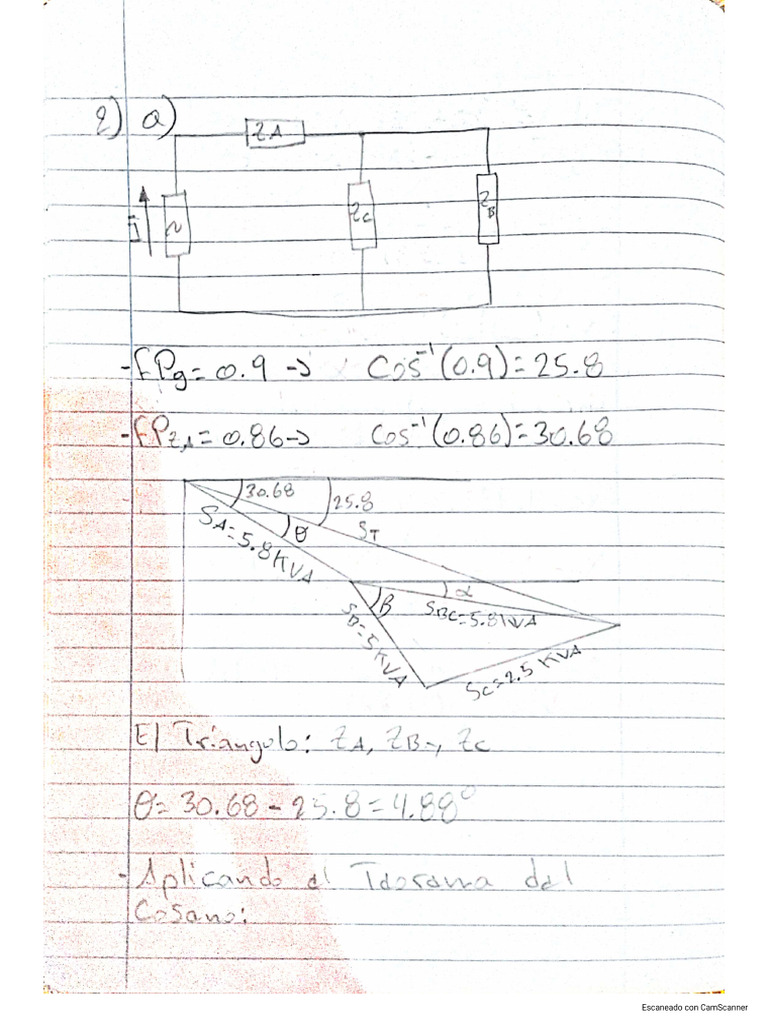 2) a)
ZA
I
~
ZC
ZB
- FPg = 0.9 → Cos⁻¹(0.9) = 25.8
- FPZA = 0.86 → Cos⁻¹(0.86) = 30.68
30.68
25.8
θ
ST
SA = 5.8 KVA
α
β
SBC = 5.8 KVA
SB = 5 KVA
SC = 2.5 KVA
El Triangulo: ZA, ZB y ZC
θ = 30.68 - 25.8 = 4.88°
- Aplicando el Teorema del
Coseno:
Escaneado con CamScanner